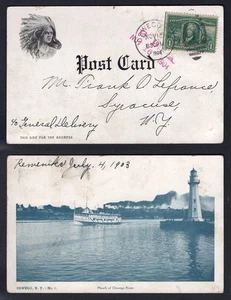 Post Card
Mr. Frank D Lefrance,
Syracuse,
c/o General Delivery N.Y.
THIS SIDE FOR THE ADDRESS
Remember July, 4, 1903
OSWEGO, N. Y.
Mouth of Oswego River